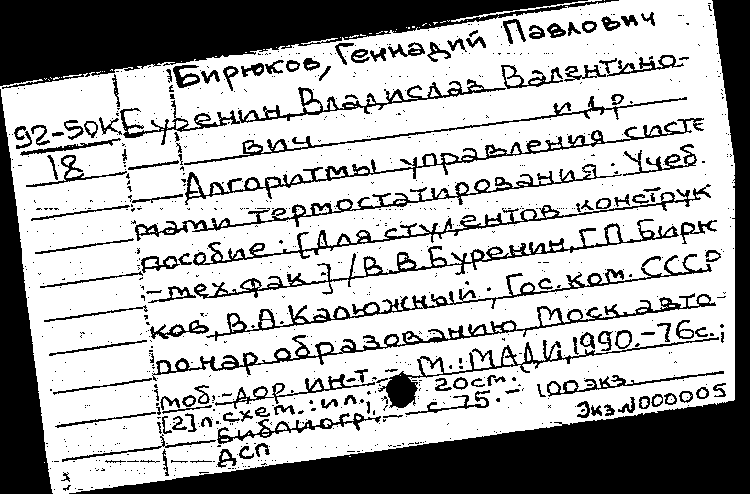 Бирюков, Геннадий Павлович
92-50К Буренин, Владислав Валентино-
18 вич и др.
Алгоритмы управления систе
мами термостатирования : Учеб.
пособие : [Для студентов конструк
-мех. фак.] / В.В. Буренин, Г.П. Бирю
ков, В.А. Калюжный ; Гос. ком. СССР
по нар. образованию, Моск. авто-
моб.-дор. ин-т. - М. : МАДИ, 1990. - 76с. ;
[2]л. схем. : ил. ; 20см. - 100экз.
Библиогр.: с 75. -
ДСП Экз. N000005